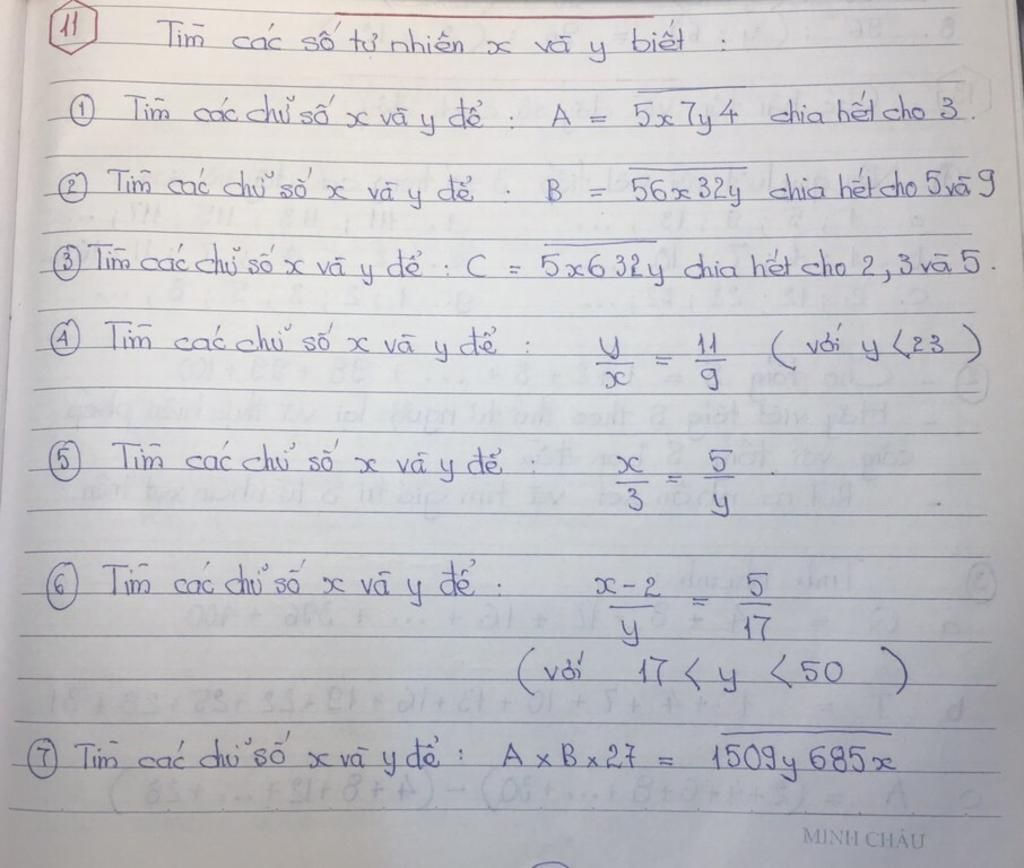 11 Tìm các số tự nhiên x và y biết :
① Tìm các chữ số x và y để : A = 5x7y4 chia hết cho 3.
② Tìm các chữ số x và y để : B = 56x32y chia hết cho 5 và 9
③ Tìm các chữ số x và y để : C = 5x632y chia hết cho 2, 3 và 5.
④ Tìm các chữ số x và y để : y/x = 11/9 ( với y < 23 )
⑤ Tìm các chữ số x và y để : x/3 = 5/y
⑥ Tìm các chữ số x và y để : x-2/y = 5/17
( với 17 < y < 50 )
⑦ Tìm các chữ số x và y để : A x B x 27 = 1509y685x
MINH CHÂU